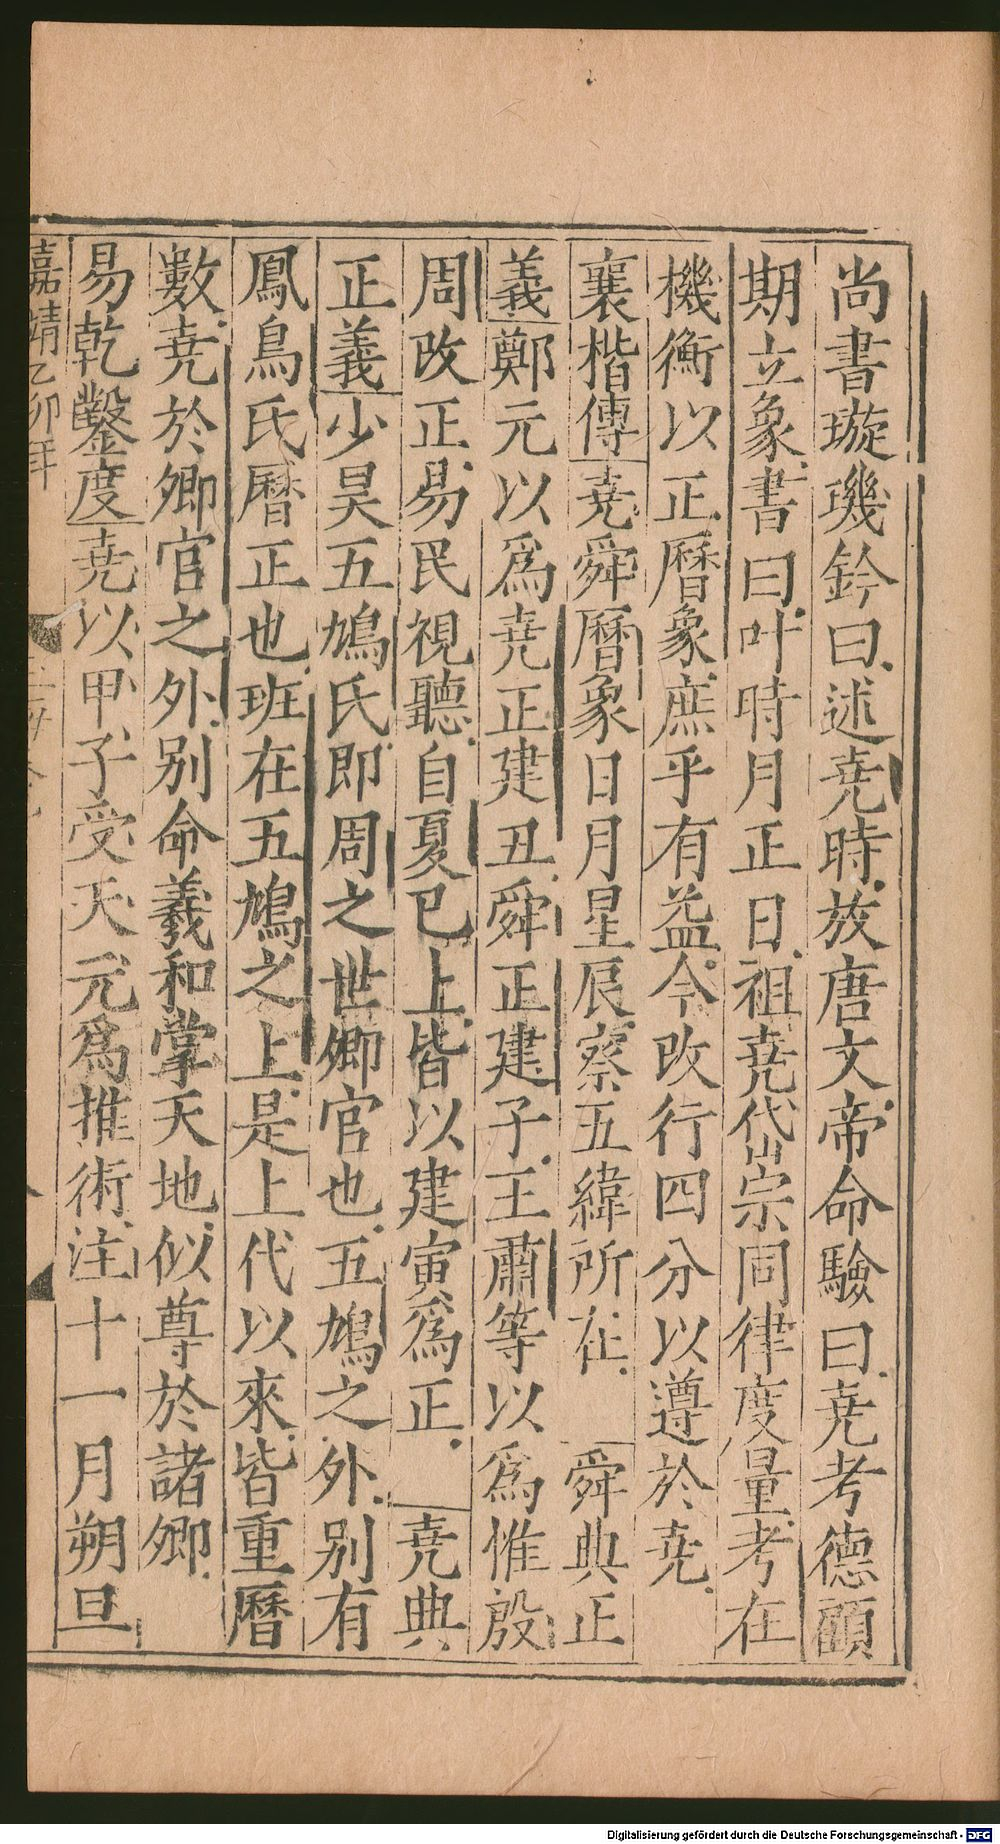 尚書璇璣鈐曰述堯時放唐文帝命驗曰堯考德顧
期立象書曰叶時月正日祖堯岱宗同律度量考在
機衡以正曆象庶乎有益今改行四分以遵於堯
襄楷傳堯舜曆象日月星辰察五緯所在 舜典正
義鄭元以爲堯正建丑舜正建子王肅等以爲惟殷
周改正易民視聽自夏已上皆以建寅爲正 堯典
正義少昊五鳩氏即周之世卿官也五鳩之外別有
鳳鳥氏曆正也班在五鳩之上是上代以來皆重曆
數堯於卿官之外別命羲和掌天地似尊於諸卿
易乾鑿度堯以甲子受天元爲推術注十一月朔旦
嘉靖乙卯年
Digitalisierung gefördert durch die Deutsche Forschungsgemeinschaft - DFG